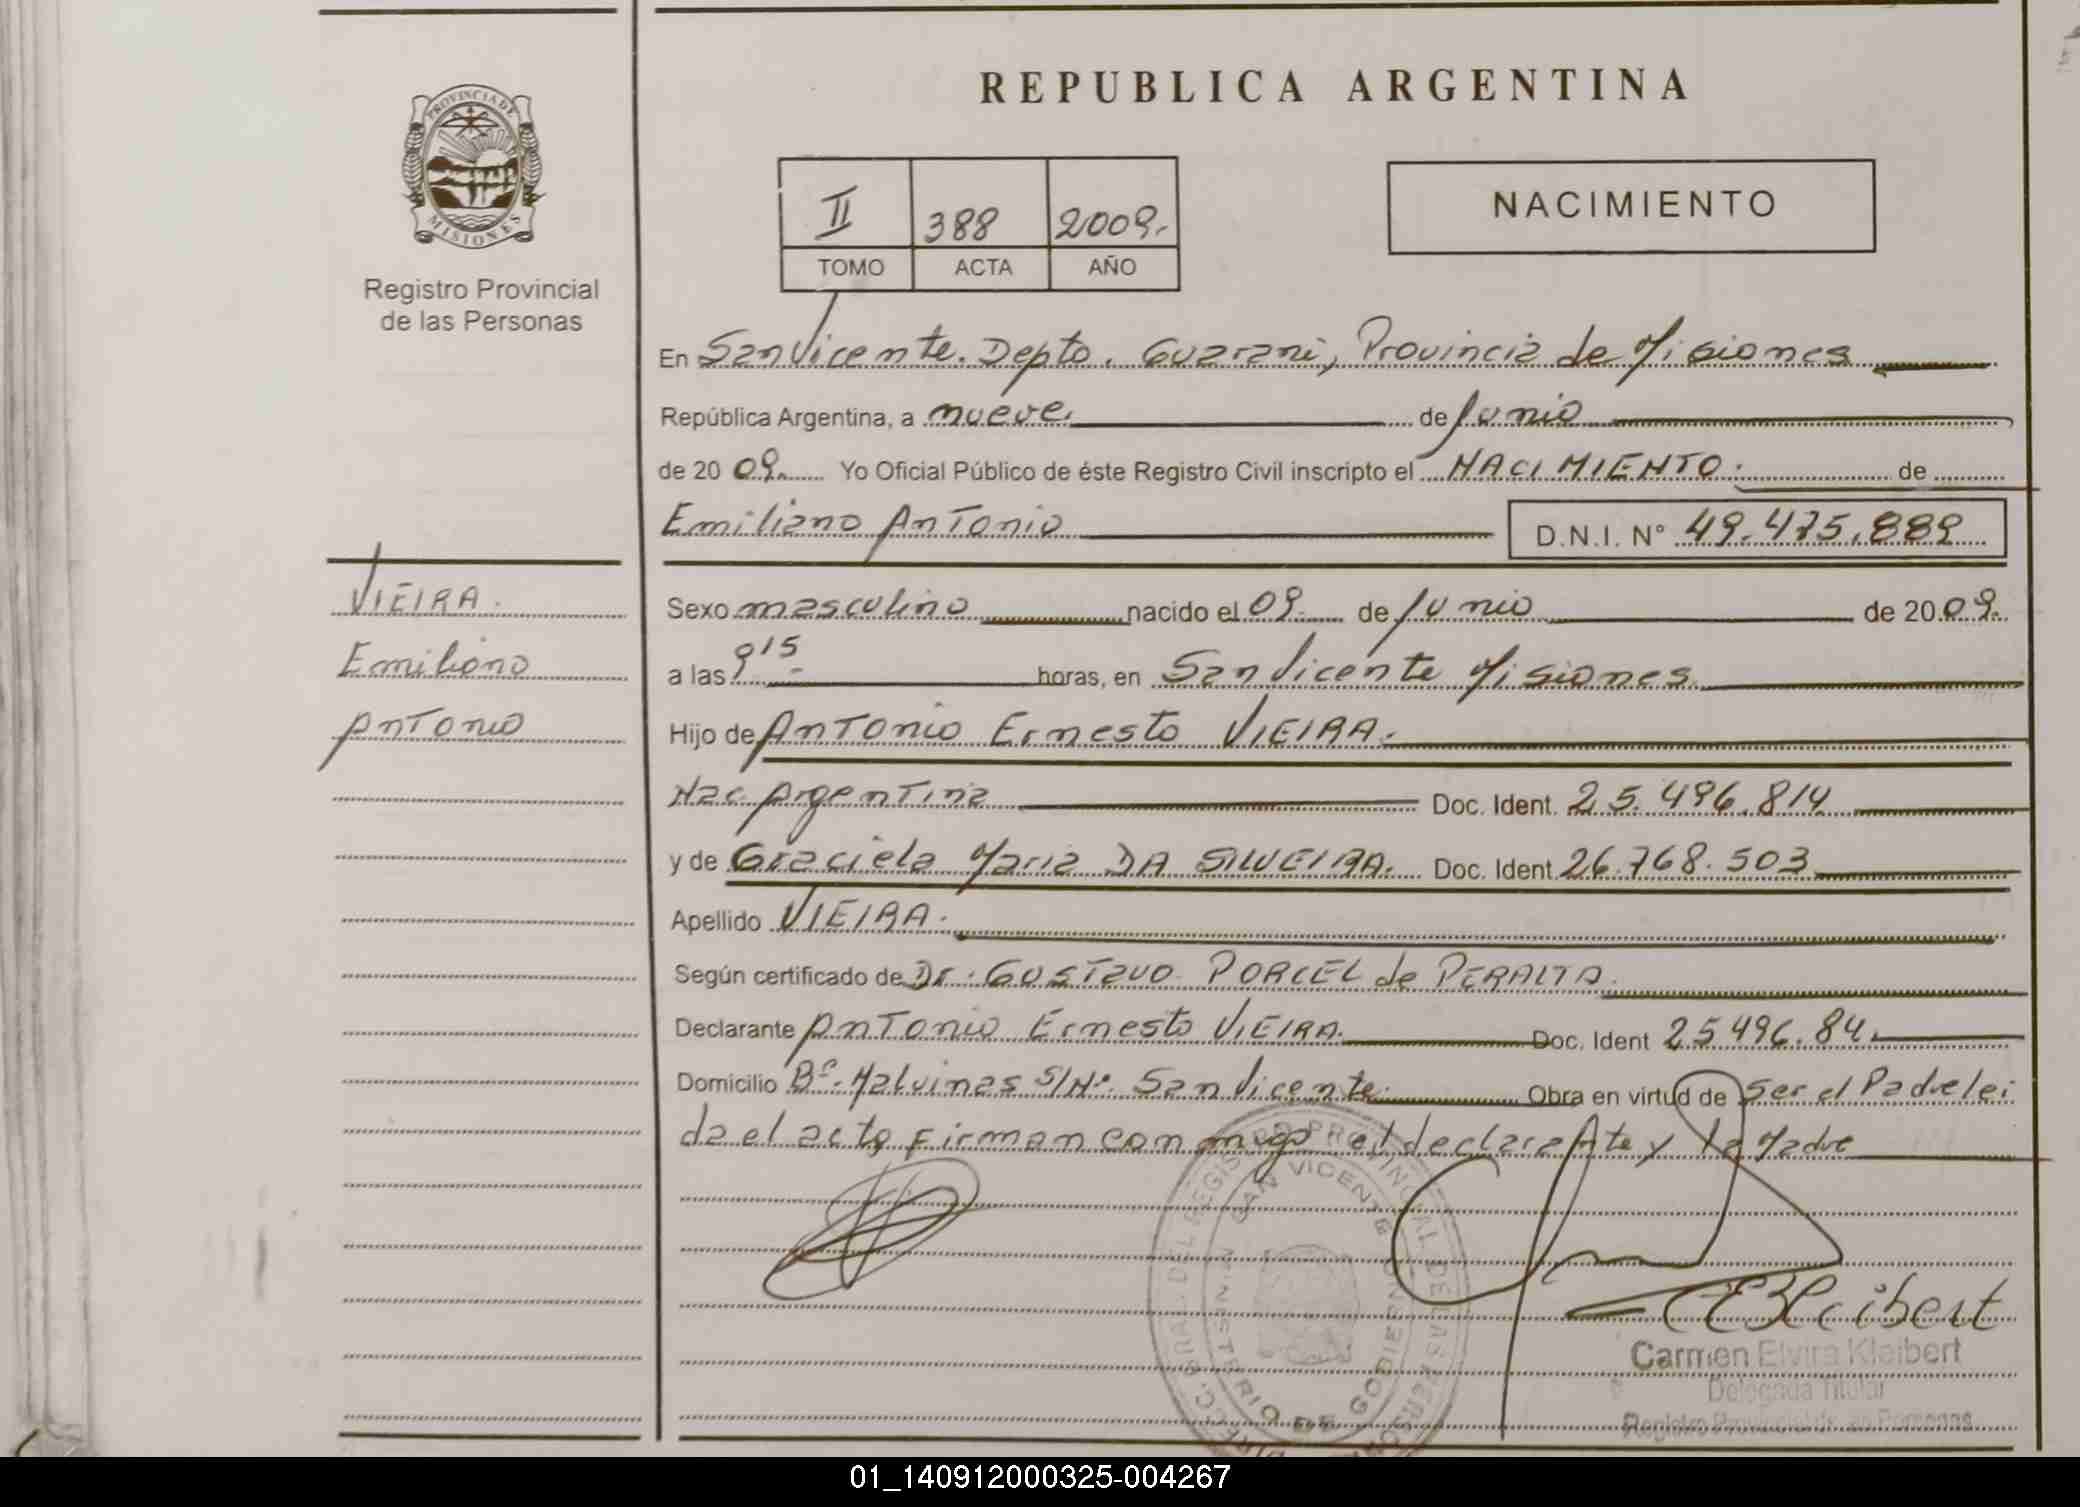 REPUBLICA ARGENTINA
PROVINCIA DE
MISIONES
Registro Provincial
de las Personas
II 388 2009.
TOMO ACTA AÑO
NACIMIENTO
En San Vicente. Depto. Guarani, Provincia de Misiones
República Argentina, a nueve. de Junio
de 2009. Yo Oficial Público de éste Registro Civil inscripto el NACIMIENTO. de
Emiliano Antonio D.N.I. N° 49.475.889
VIEIRA.
Emiliano
Antonio
Sexo masculino nacido el 09. de Junio de 2009.
a las 9 15 horas, en San Vicente Misiones.
Hijo de Antonio Ernesto VIEIRA.
Nac. Argentina Doc. Ident. 25.496.814
y de Graciela Maria DA SILVEIRA. Doc. Ident. 26.768.503
Apellido VIEIRA.
Según certificado de Dr. Gustavo PORCEL de PERALTA.
Declarante Antonio Ernesto VIEIRA. Doc. Ident 25496.84.
Domicilio B°. Malvinas S/N°. San Vicente. Obra en virtud de Ser el Padre lei
da el acto Firman con migo el declarante y la Madre
DIREC. GRAL. DEL REGISTRO PROVINCIAL DE LAS PERSONAS
SAN VICENTE
MINISTERIO DE GOBIERNO
CEKleibert
Carmen Elvira Kleibert
Delegada Titular
Registro Provincial de las Personas
01_140912000325-004267